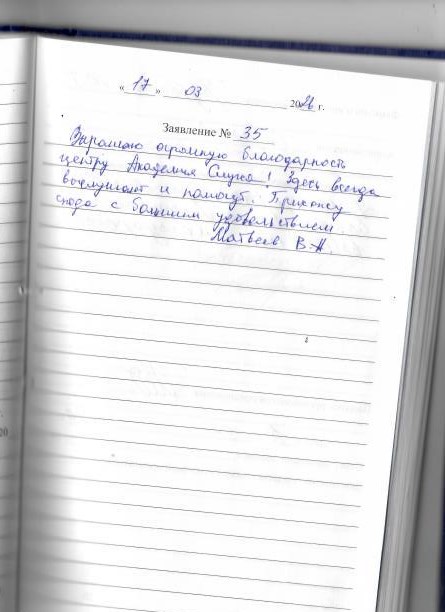 « 17 » 03 2026 г.
Заявление № 35
Выражаю огромную благодарность
центру Академия Слуха! Здесь всегда
выслушают и помогут. Прихожу
сюда с большим удовольствием.
Матвеев В.А.